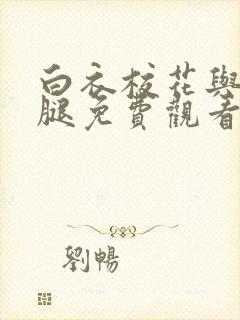 白衣校花與
腿免費觀看
劉暢